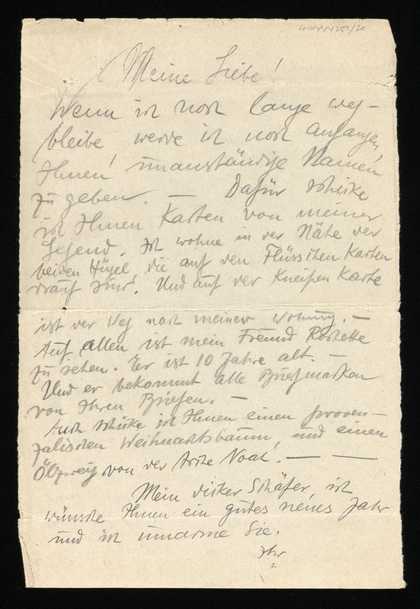 Meine Liebe!
Wenn ich noch lange weg-
bleibe werde ich noch anfangen,
Ihnen unanständige Namen
zu geben. — Dafür schicke
ich Ihnen Karten von meiner
Gegend. Ich wohne in der Nähe der
beiden Hügel die auf den Karten
drauf sind. Und auf der Karte
ist der Weg nach meiner Wohnung. —
Auf allen ist mein Freund
zu sehen. Er ist 10 Jahre alt. —
Und er bekommt alle Briefmarken
von Ihren Briefen. —
Auch schicke ich Ihnen einen proven-
zalischen Weihnachtsbaum, und einen
Ölzweig von der Arche Noah. — —
Mein dicker Schäfer, ich
wünsche Ihnen ein gutes neues Jahr
und ich umarme Sie.
Ihr